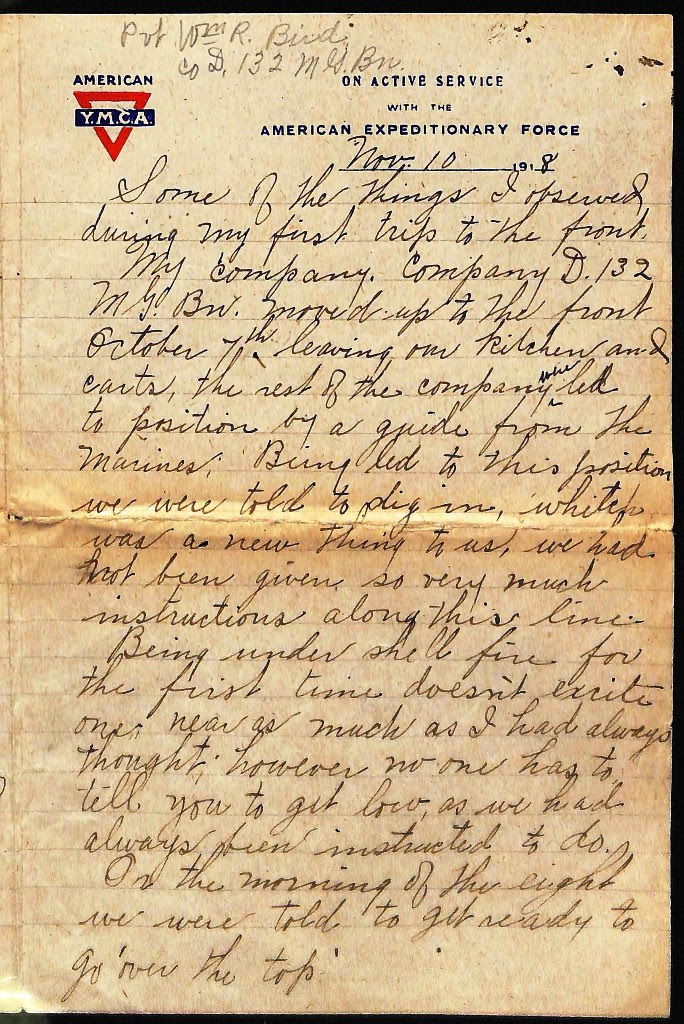 Pvt Wm R. Bird
Co D, 132 M.G. Bn.
AMERICAN
Y.M.C.A.
ON ACTIVE SERVICE
WITH THE
AMERICAN EXPEDITIONARY FORCE
Nov. 10 1918
Some of the things I observed
during my first trip to the front.
My company. Company D. 132
M.G. Bn. moved up to the front
October 7th. leaving our kitchen and
carts, the rest of the company were led
to position by a guide from the
Marines. Being led to this position
we were told to dig in, which
was a new thing to us, we had
not been given so very much
instructions along this line.
Being under shell fire for
the first time doesn't excite
one, near as much as I had always
thought; however no one has to
tell you to get low, as we had
always been instructed to do.
On the morning of the eight
we were told to get ready to
go over the top